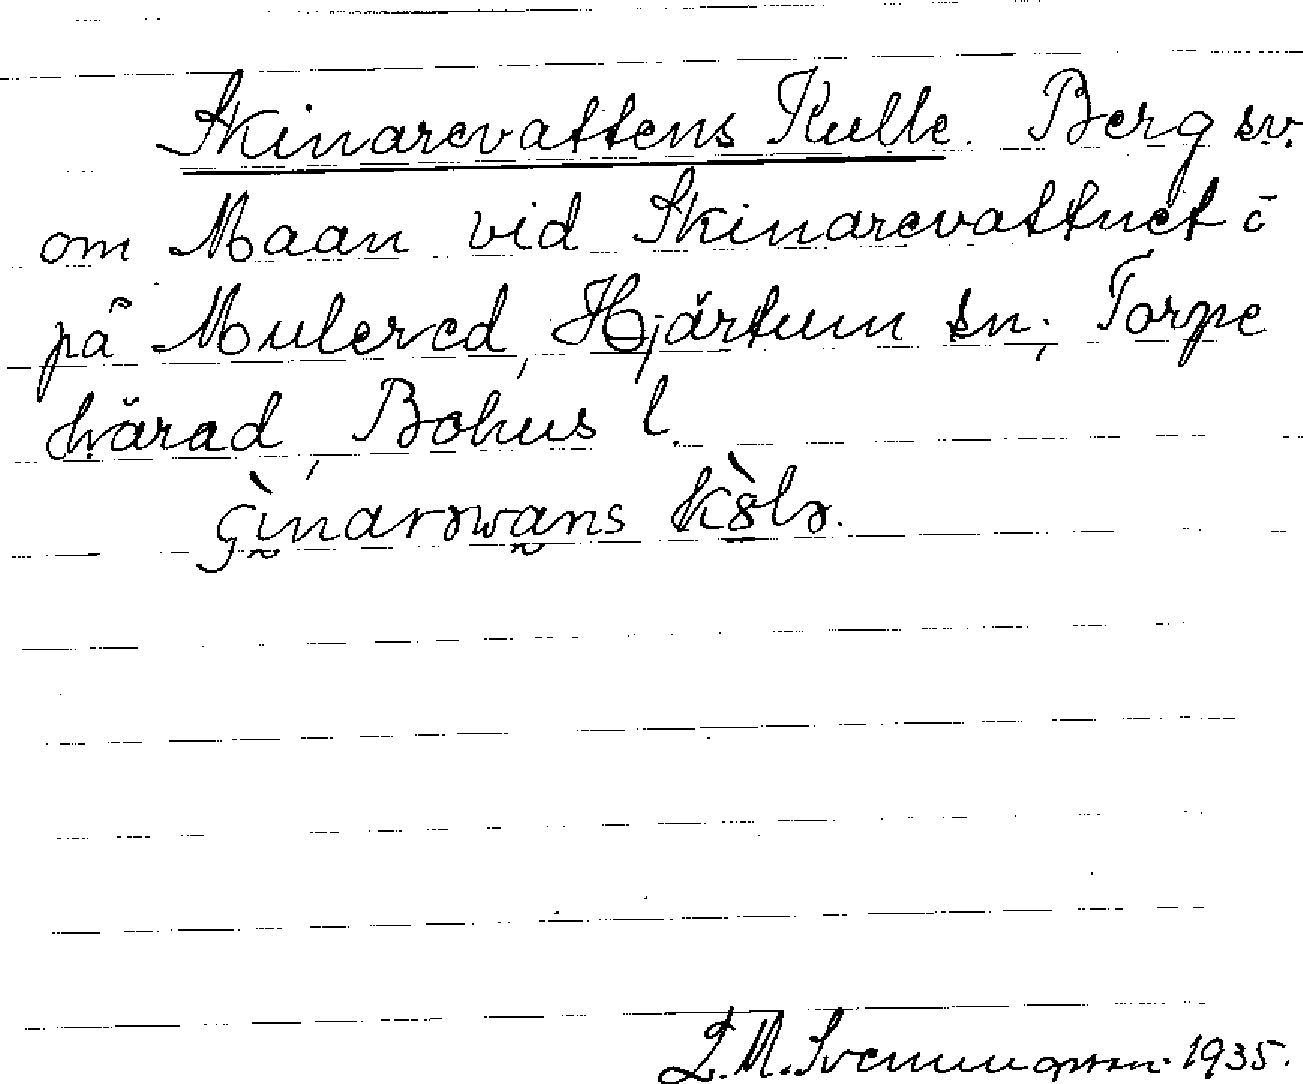 Skinarevattens Kulle. Berg sv.
om Maan vid Skinarevattnet i
på Mulered, Hjärtum sn; Torpe
härad, Bohus l.
S. M. Svenningsson 1935.